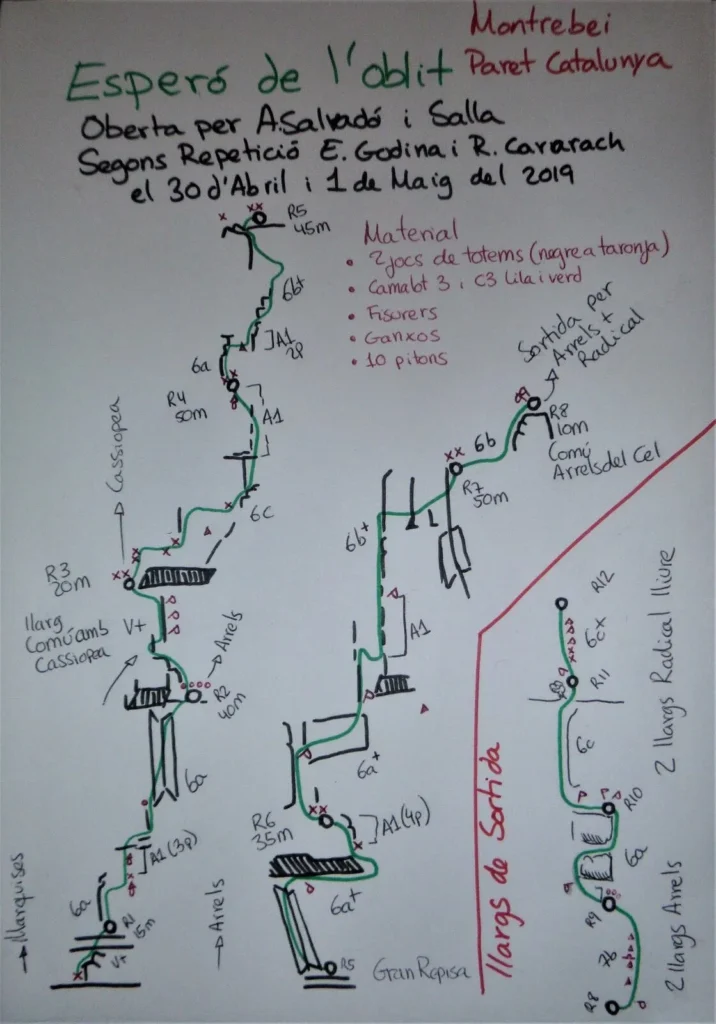 Montrebei
Paret Catalunya
Esperó de l'oblit
Oberta per A.Salvadó i Salla
Segons Repetició E. Godina i R. Cararach
el 30 d'Abril i 1 de Maig del 2019
Material
• 2 jocs de totems (negre a taronja)
• Camabt 3 i C3 Lila i verd
• Fisurers
• Ganxos
• 10 pitons
R5
45m
6b+
A1
2p
6a
R4
50m
A1
Cassiopea
6c
R3
20m
llarg
Comú amb
Cassiopea
V+
Arrels
R2
40m
6a
A1 (3p)
6a
R1
15m
V+
Marquises
Arrels
Sortida per
Arrels +
Radical
R8
10m
Comú
Arrels del Cel
6b
R7
50m
6b+
A1
6a+
R6
35m
A1 (4p)
6a+
R5
Gran Repisa
llargs de Sortida
R12
6c
R11
6c
R10
6a
R9
7b
R8
2 llargs Radical lliure
2 llargs Arrels